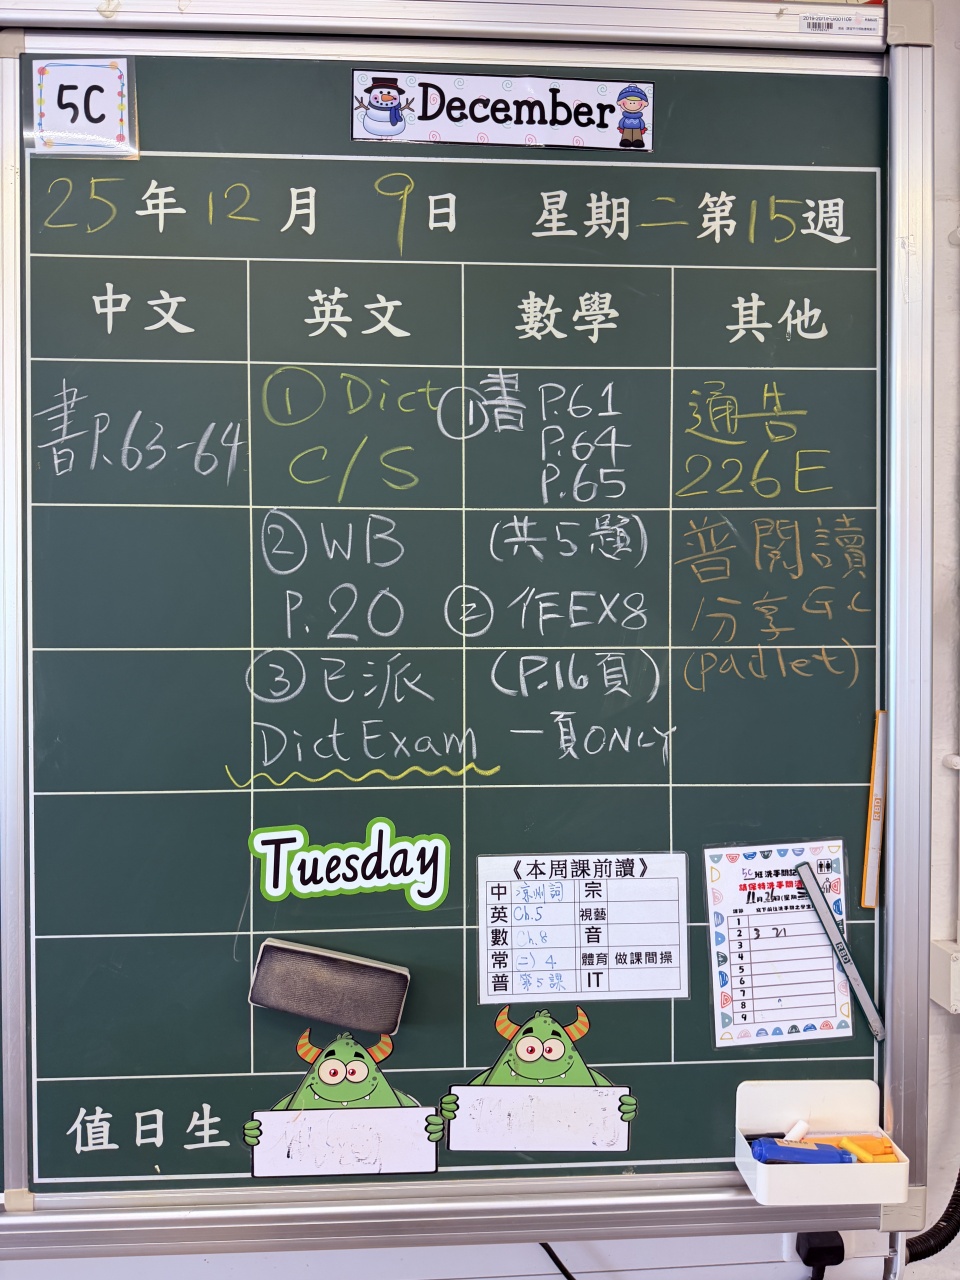 5C
December
25年12月9日 星期二第15週
中文
英文
數學
其他
書P.63-64
① Dict
C/S
② WB
P.20
③ 已派
Dict Exam
① 書 P.61
P.64
P.65
(共5題)
② 作EX8
(P.16頁)
一頁ONLY
通告
226E
普閱讀
分享 G.C
(padlet)
Tuesday
《本周課前讀》
中 涼州詞 宗
英 Ch.5 視藝
數 Ch.8 音
常 二) 4 體育 做課間操
普 第5課 IT
5C班洗手間記
請保持洗手間清
1
2 3 21
3
4
5
6
7
8
9
RBD
RBD
值日生